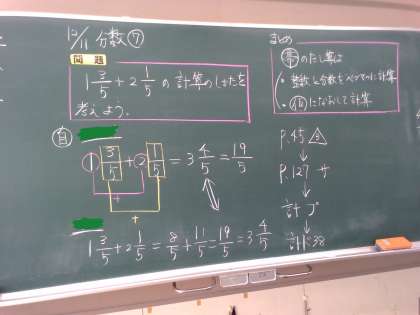 12/11 分数⑦
問題
1 3/5 + 2 1/5 の計算のしかたを
考えよう。
自
1 3/5 + 2 1/5 = 3 4/5 = 19/5
+
+
1 3/5 + 2 1/5 = 8/5 + 11/5 = 19/5 = 3 4/5
まとめ
帯のたし算は
・整数と分数をべつべつに計算
・仮になおして計算
P.45 △3
↓
P.127 サ
↓
計プ
↓
計ド38